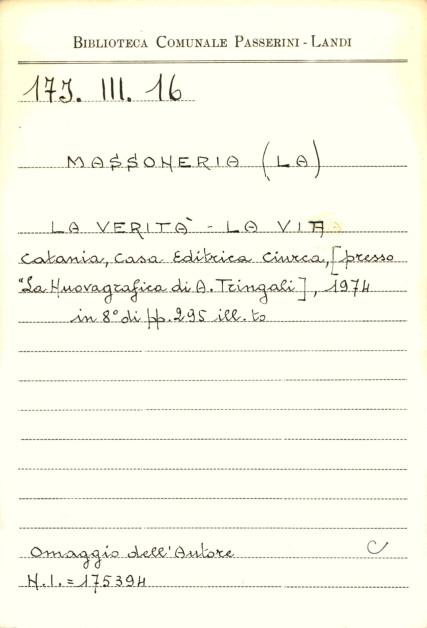 BIBLIOTECA COMUNALE PASSERINI - LANDI
17J. III. 16
MASSONERIA (LA)
LA VERITÀ - LA VITA
Catania, Casa Editrice Ciurca, [presso
"La Nuovagrafica di A. Tringali], 1974
in 8° di pp. 295 ill.to
Omaggio dell'Autore C
N.I. = 175394